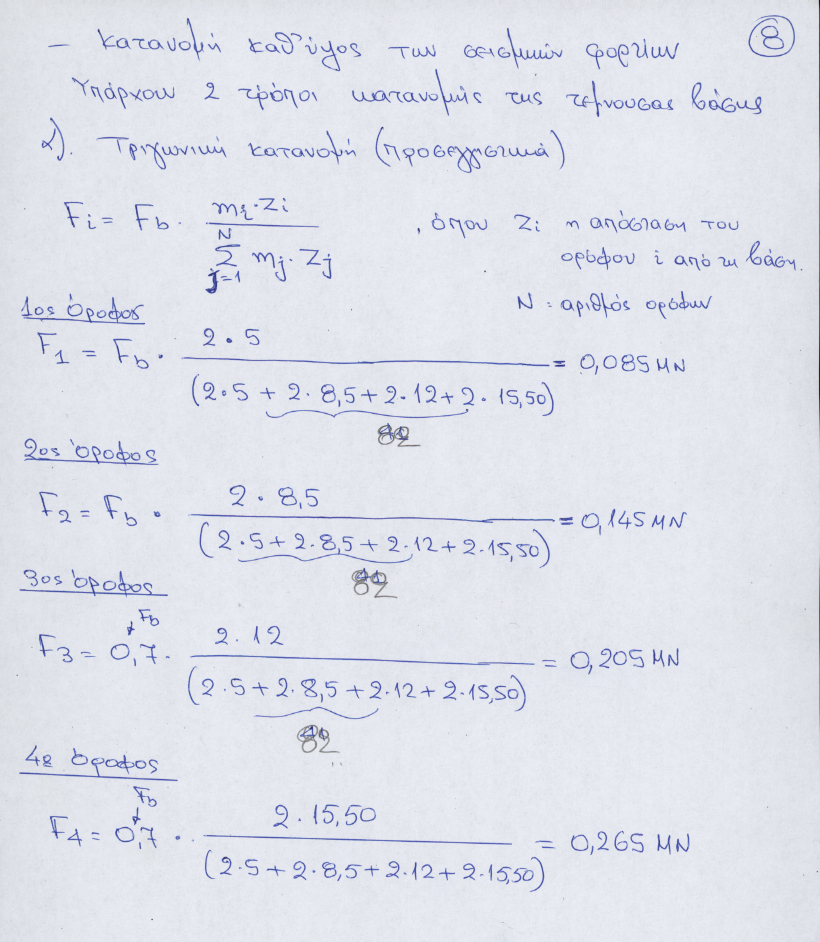 8
– Κατανομή καθ' ύψος των σεισμικών φορτίων
Υπάρχουν 2 τρόποι κατανομής της τέμνουσας βάσης
α). Τριγωνική κατανομή (προσεγγιστικά)
Fi = Fb · mi·Zi / N Σ j=1 mj·Zj , όπου Zi η απόσταση του
ορόφου i από τη βάση.
N : αριθμός ορόφων
1ος Όροφος
F1 = Fb · 2·5 / (2·5 + 2·8,5 + 2·12 + 2·15,50) = 0,085 MN
82
2ος Όροφος
F2 = Fb · 2·8,5 / (2·5 + 2·8,5 + 2·12 + 2·15,50) = 0,145 MN
82
3ος Όροφος
Fb
F3 = 0,7 · 2·12 / (2·5 + 2·8,5 + 2·12 + 2·15,50) = 0,205 MN
82
4ος Όροφος
Fb
F4 = 0,7 · 2·15,50 / (2·5 + 2·8,5 + 2·12 + 2·15,50) = 0,265 MN